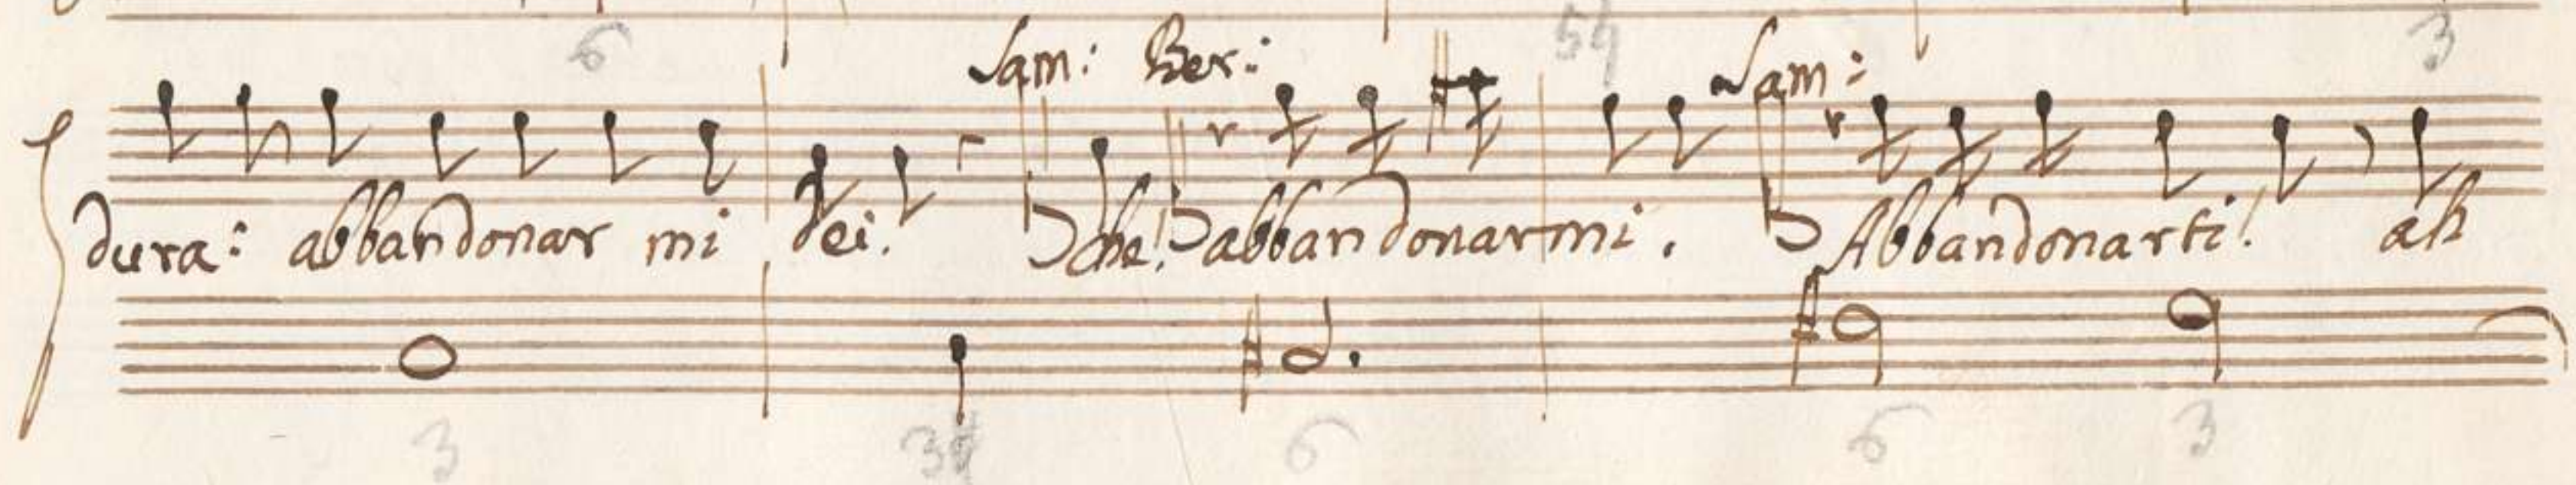 6 5♮ 3
Sam: Ber: Sam:
dura: abbandonar mi dei. Che! abbandonarmi. Abbandonarti! ah
3 3# 6 6 3